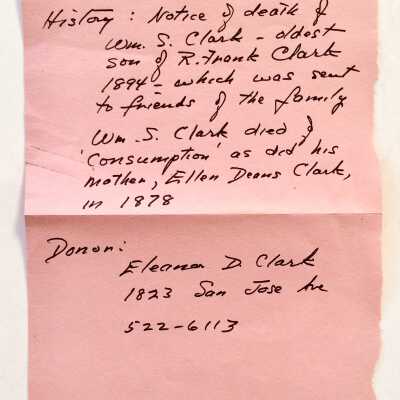 History: Notice of death of
Wm. S. Clark - oldest
son of R. Frank Clark
1894 - which was sent
to friends of the family
Wm. S. Clark died of
'Consumption' as did his
mother, Ellen Deans Clark,
in 1878
Donor:
Eleanor D. Clark
1823 San Jose Ave
522-6113